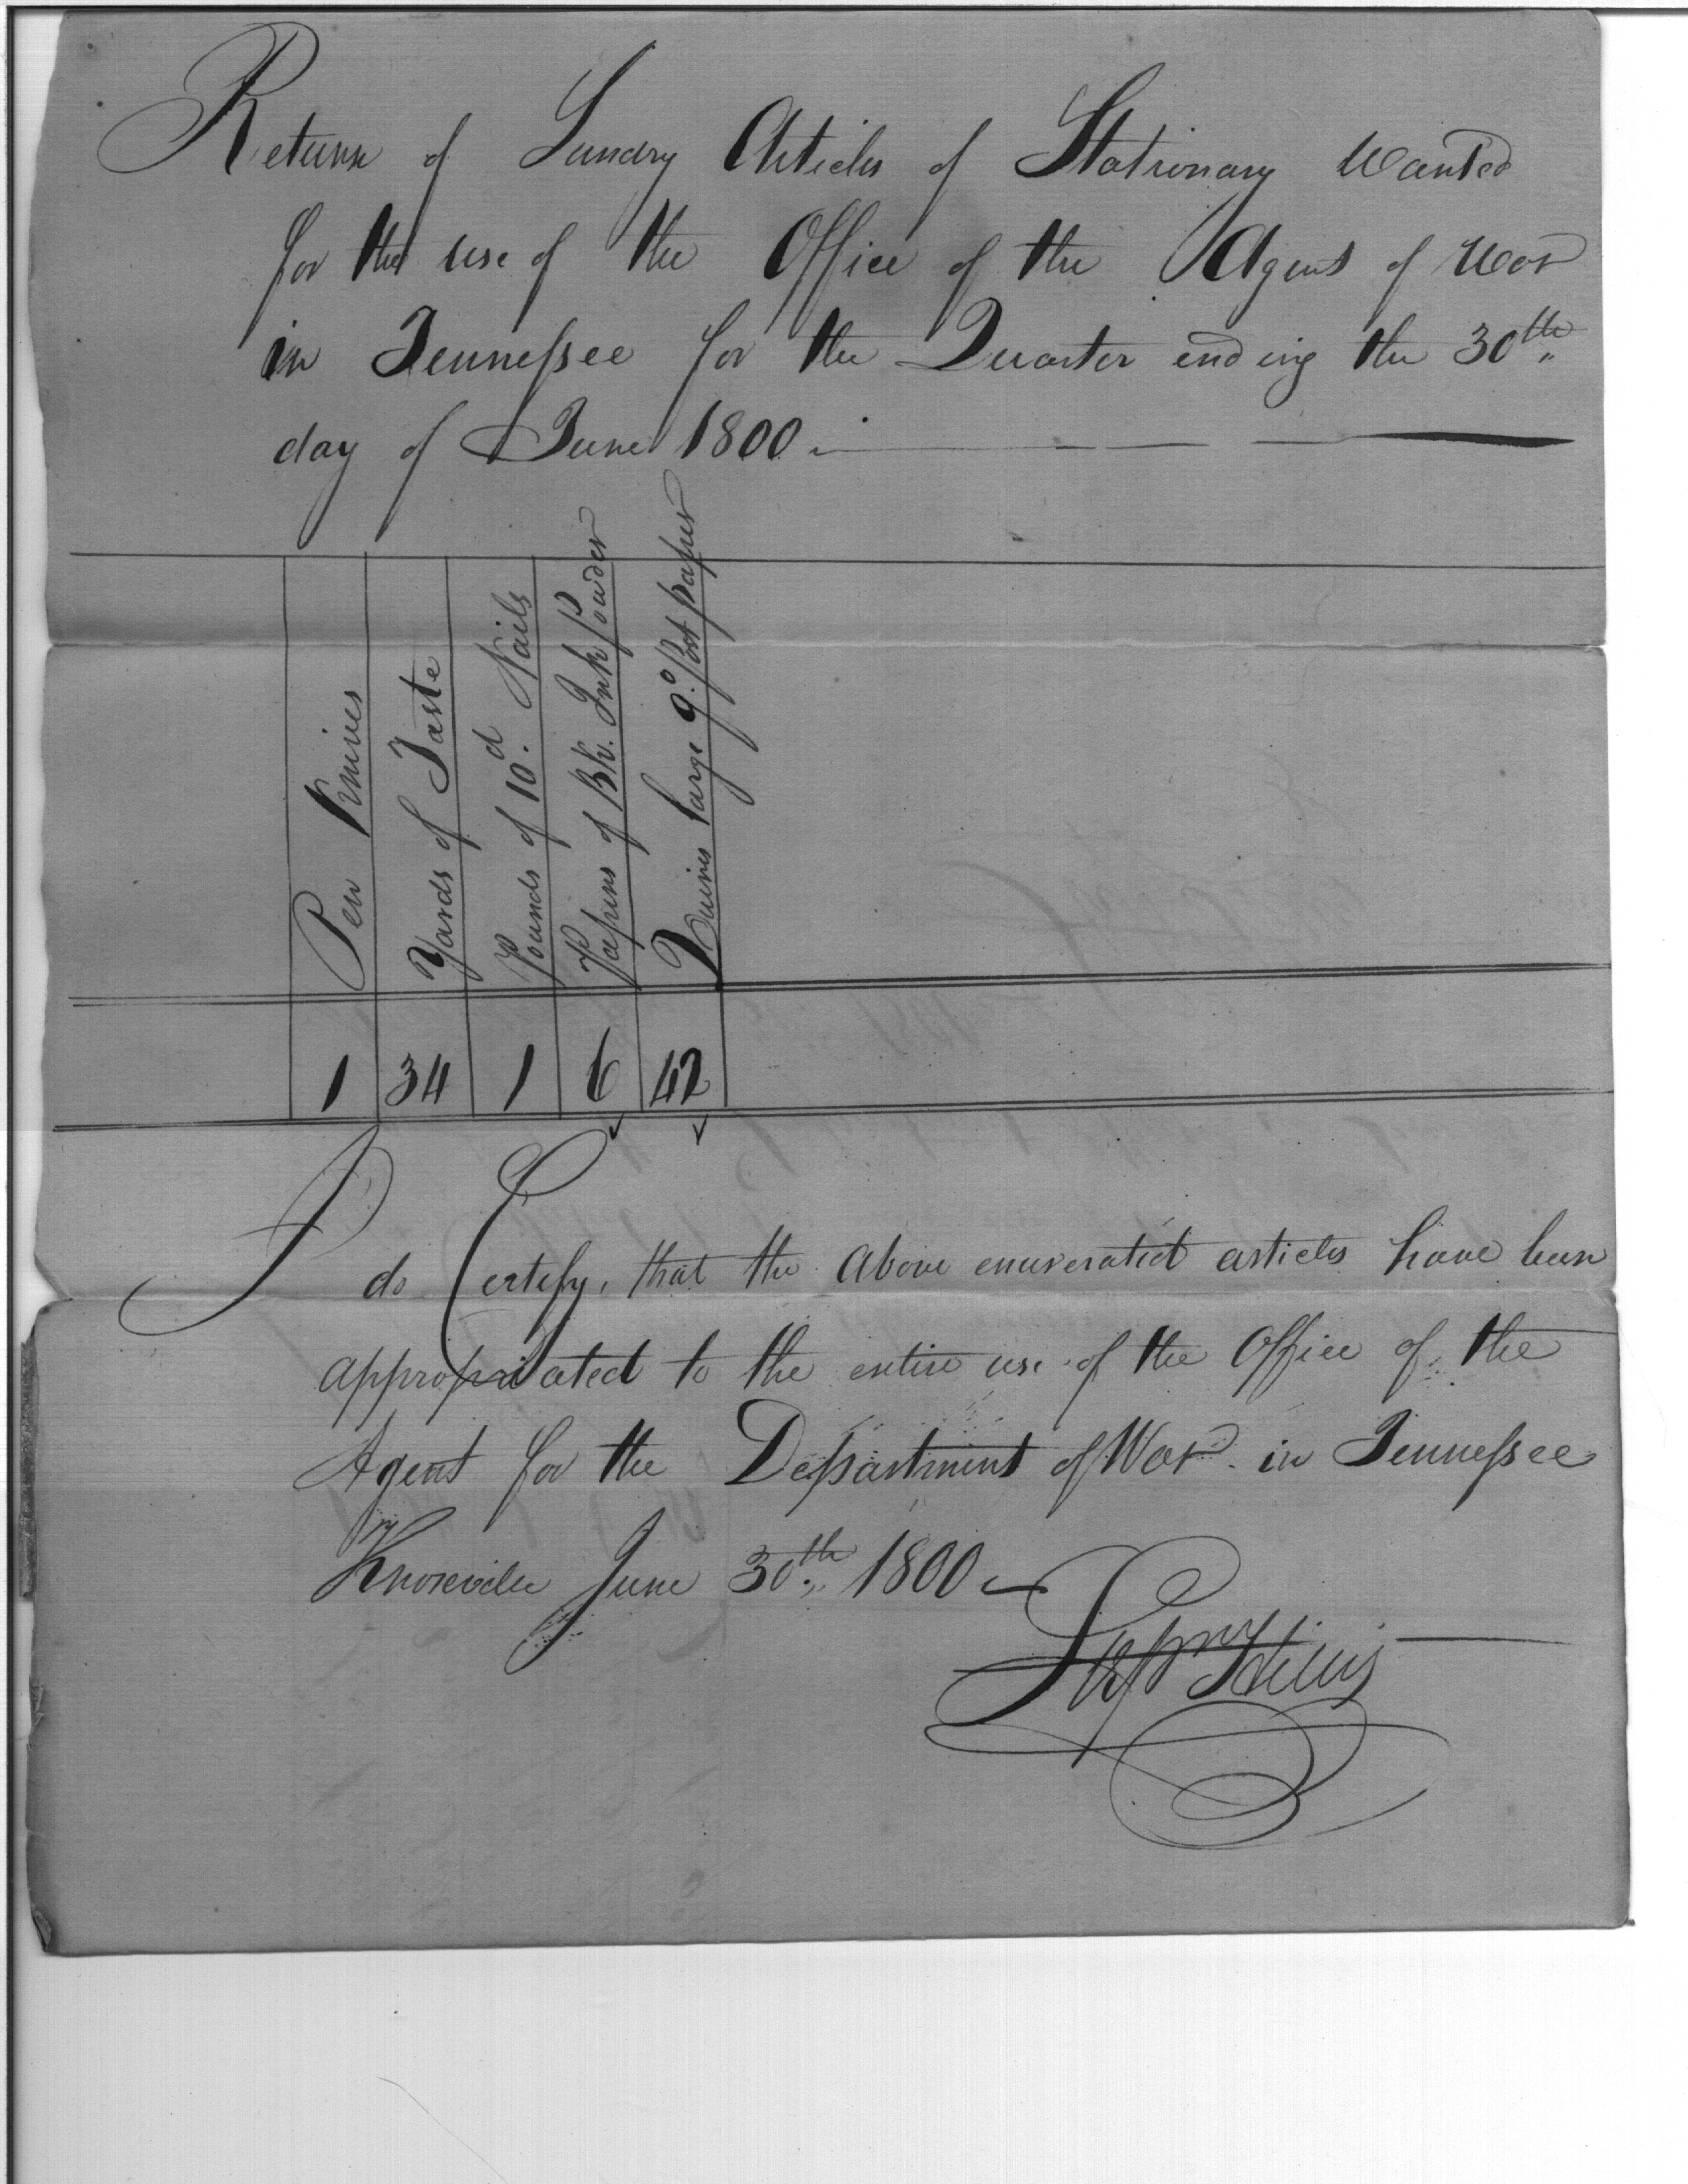 Return of Sundry Articles of Stationary Wanted
for the use of the Office of the Agent of War
in Tennessee for the Quarter ending the 30th
day of June 1800
Pen Knives
Yards of Taste
Pounds of 10d. Nails
Papers of Blk. Ink Powder
Quires large 9o. Post paper
1 34 1 6 42
I do Certify, that the above enumerated articles have been
appropriated to the entire use of the Office of the
Agent for the Department of War in Tennessee
Knoxville June 30th 1800